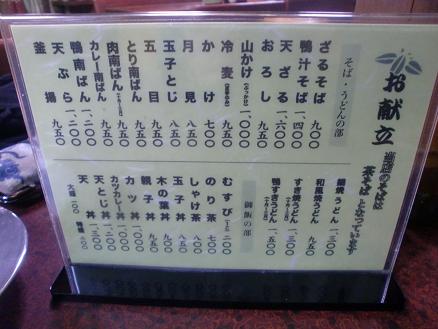 お献立
当店のそばは
茶そばとなっています
そば・うどんの部
ざるそば 九〇〇
鴨汁そば 一、四〇〇
天ざる 一、六〇〇
おろし 九五〇
山かけ 一、〇〇〇
冷麦 九五〇
かけ 七〇〇
月見 八五〇
玉子とじ 八五〇
五目 九五〇
とり南ばん 九五〇
肉南ばん 九五〇
カレー南ばん 九五〇
鴨南ばん 一、二〇〇
天ぷら 一、二〇〇
釜揚 九五〇
鍋焼うどん 一、三〇〇
和風焼うどん 九五〇
すき焼うどん 一、三〇〇
鴨すきうどん 一、五〇〇
御飯の部
むすび 二〇〇
のり茶 七〇〇
しゃけ茶 八〇〇
玉子丼 八五〇
木の葉丼 九五〇
親子丼 九五〇
カツ丼 一、〇〇〇
カツカレー丼 一、一〇〇
天とじ丼 一、二〇〇
天丼 一、二〇〇
大盛 一〇〇